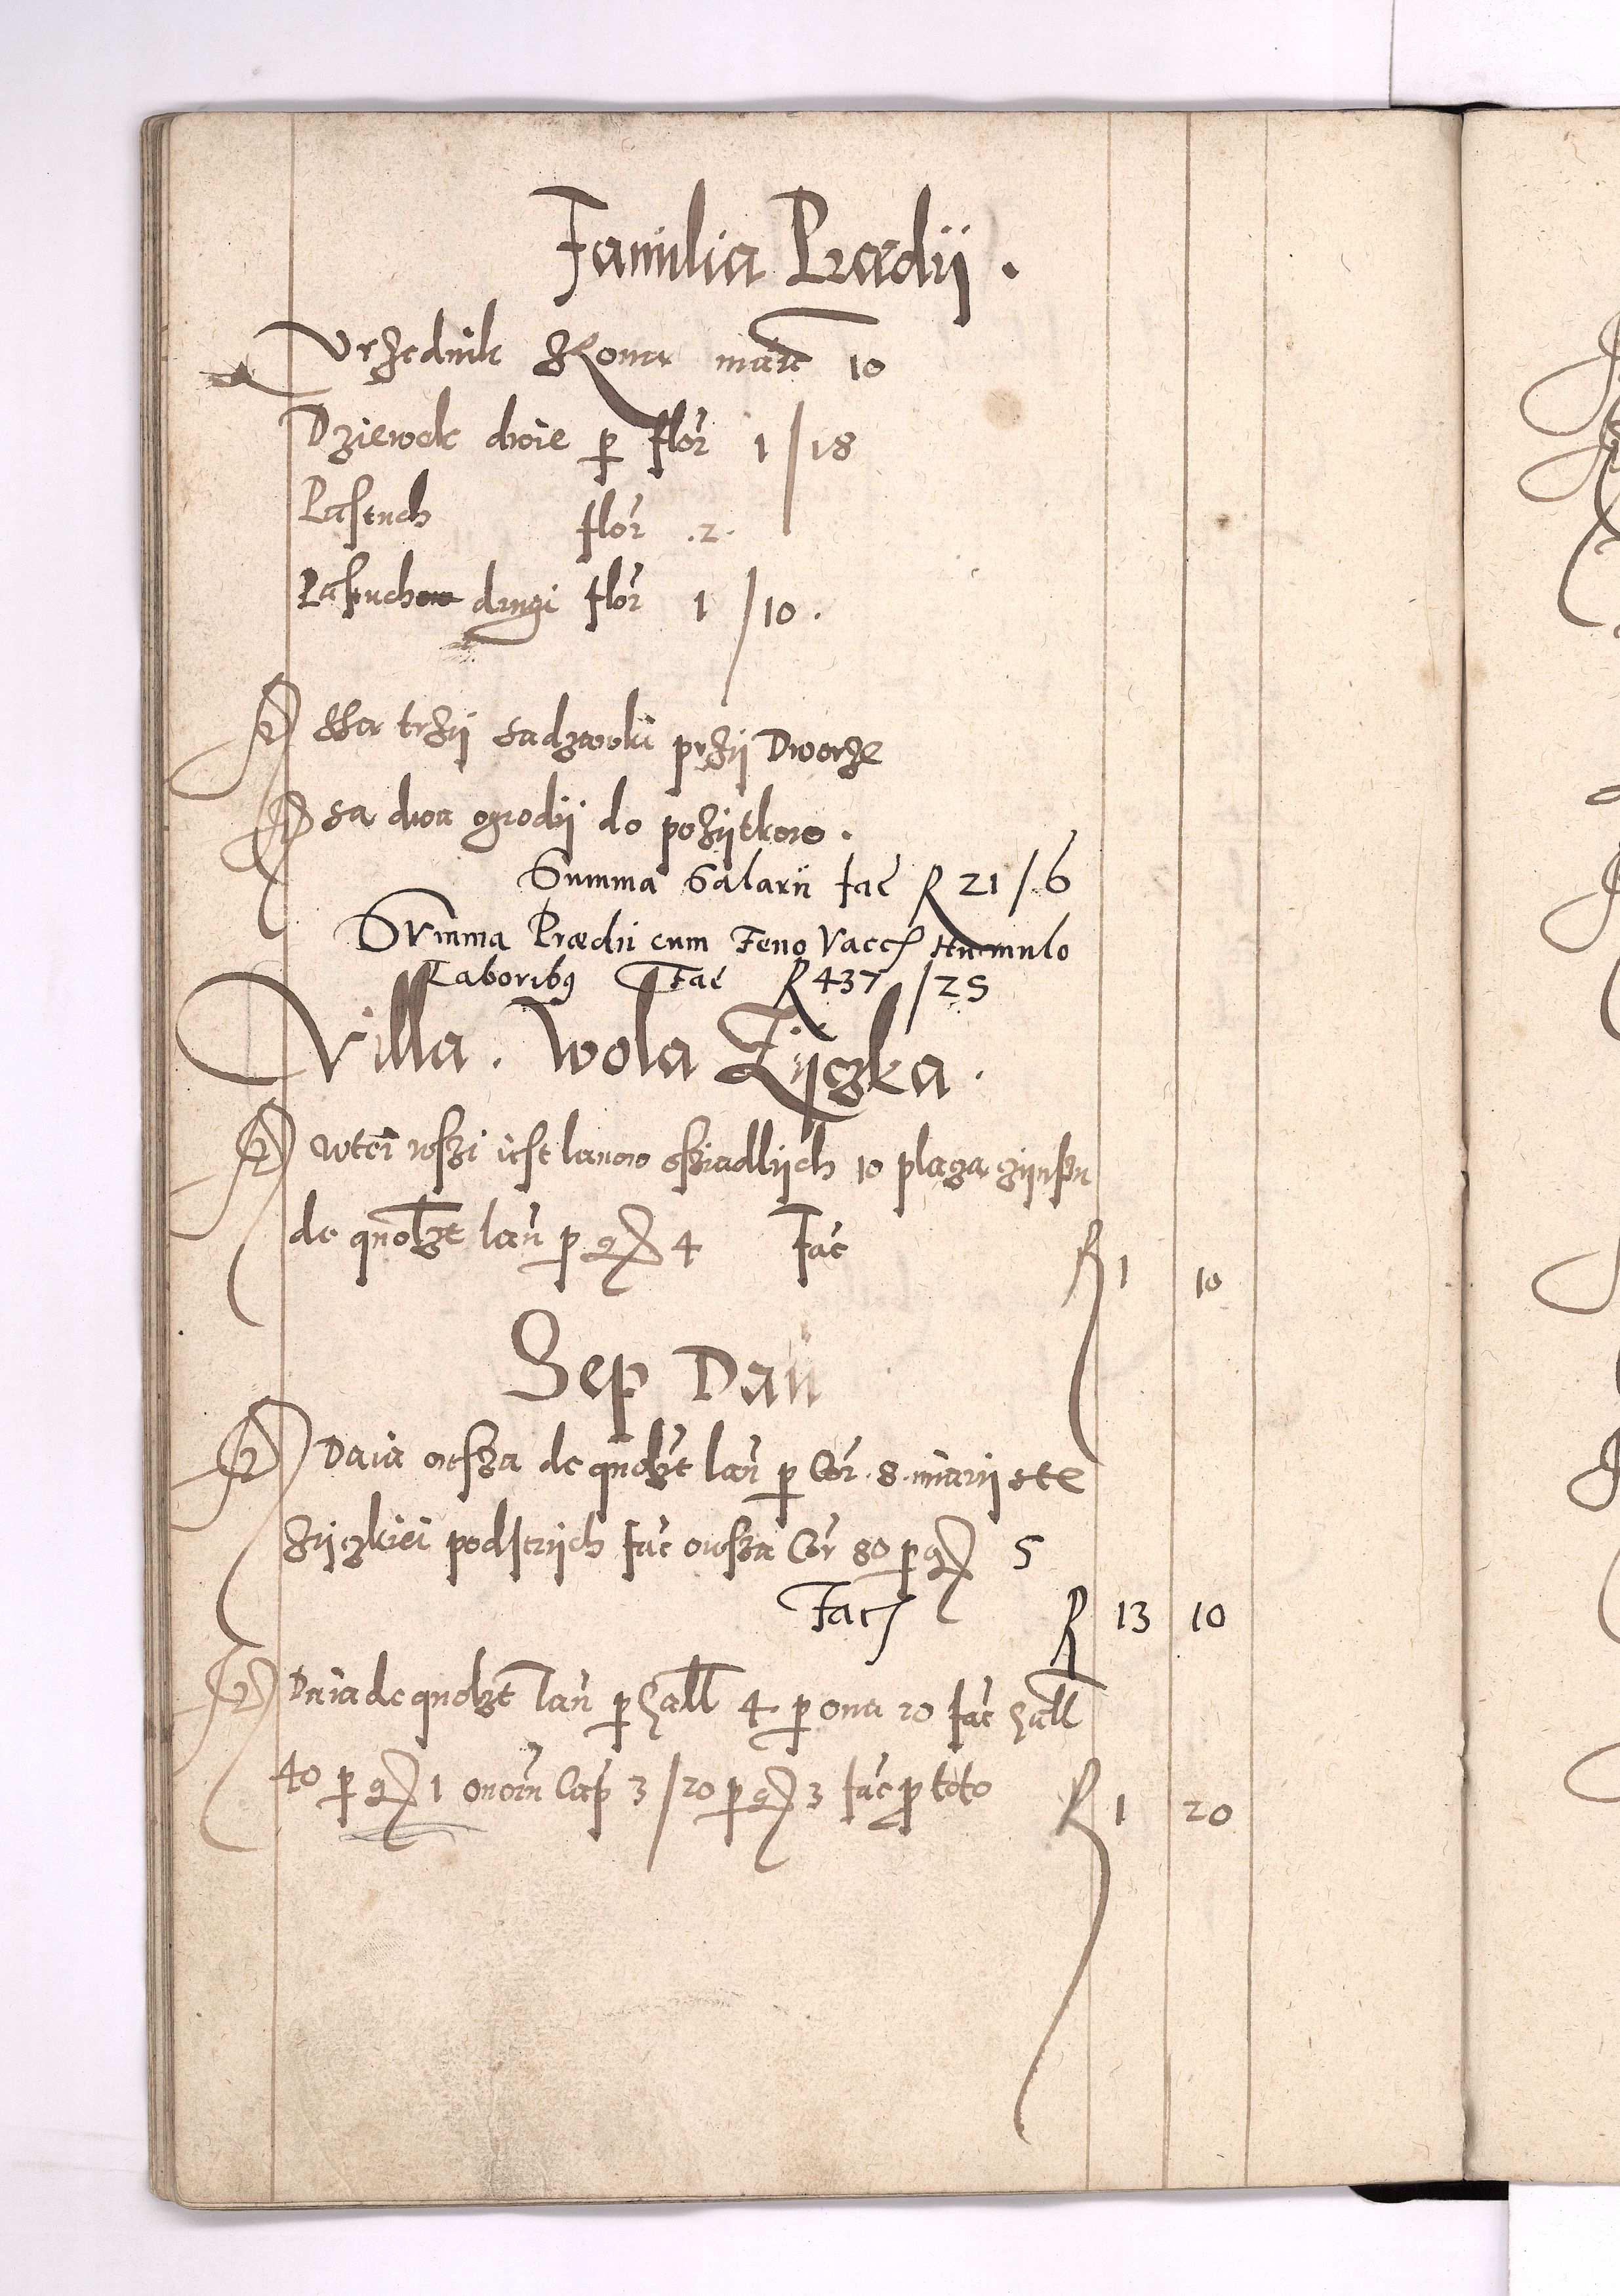 Familia Prædij .
Vrzednik Zkona marc 10
Dziewek dwie p flor 1/18
Pastuch flor .2.
Pastuch drugi flor 1/10.
Ssa trzij sadzawki przij Dworze
Sa dwa ogrodij do pozijtkow .
Summa Salarii fac R 21/6
Summa Prædii cum Feno Vacc Humulo
Laboribq Fac R 437/25
Villa . Wola Zijczka .
wtei wszi iest lanow osziadlijch 10 placza czijnszu
de quolzt lan p gr 4 Fac R 1 10
Sep Dan
Daia owsza de quolzt lan p Cor .8. miarij ste
zijczkiei podstrijch fac owsza Cor 80 p gr 5
Fac R 13 10
Daia de quolzt lan p Gall 4 p oua 20 fac Gall
40 p gr 1 ouorn Cap 3/20 p gr 3 fac p toto R 1 20